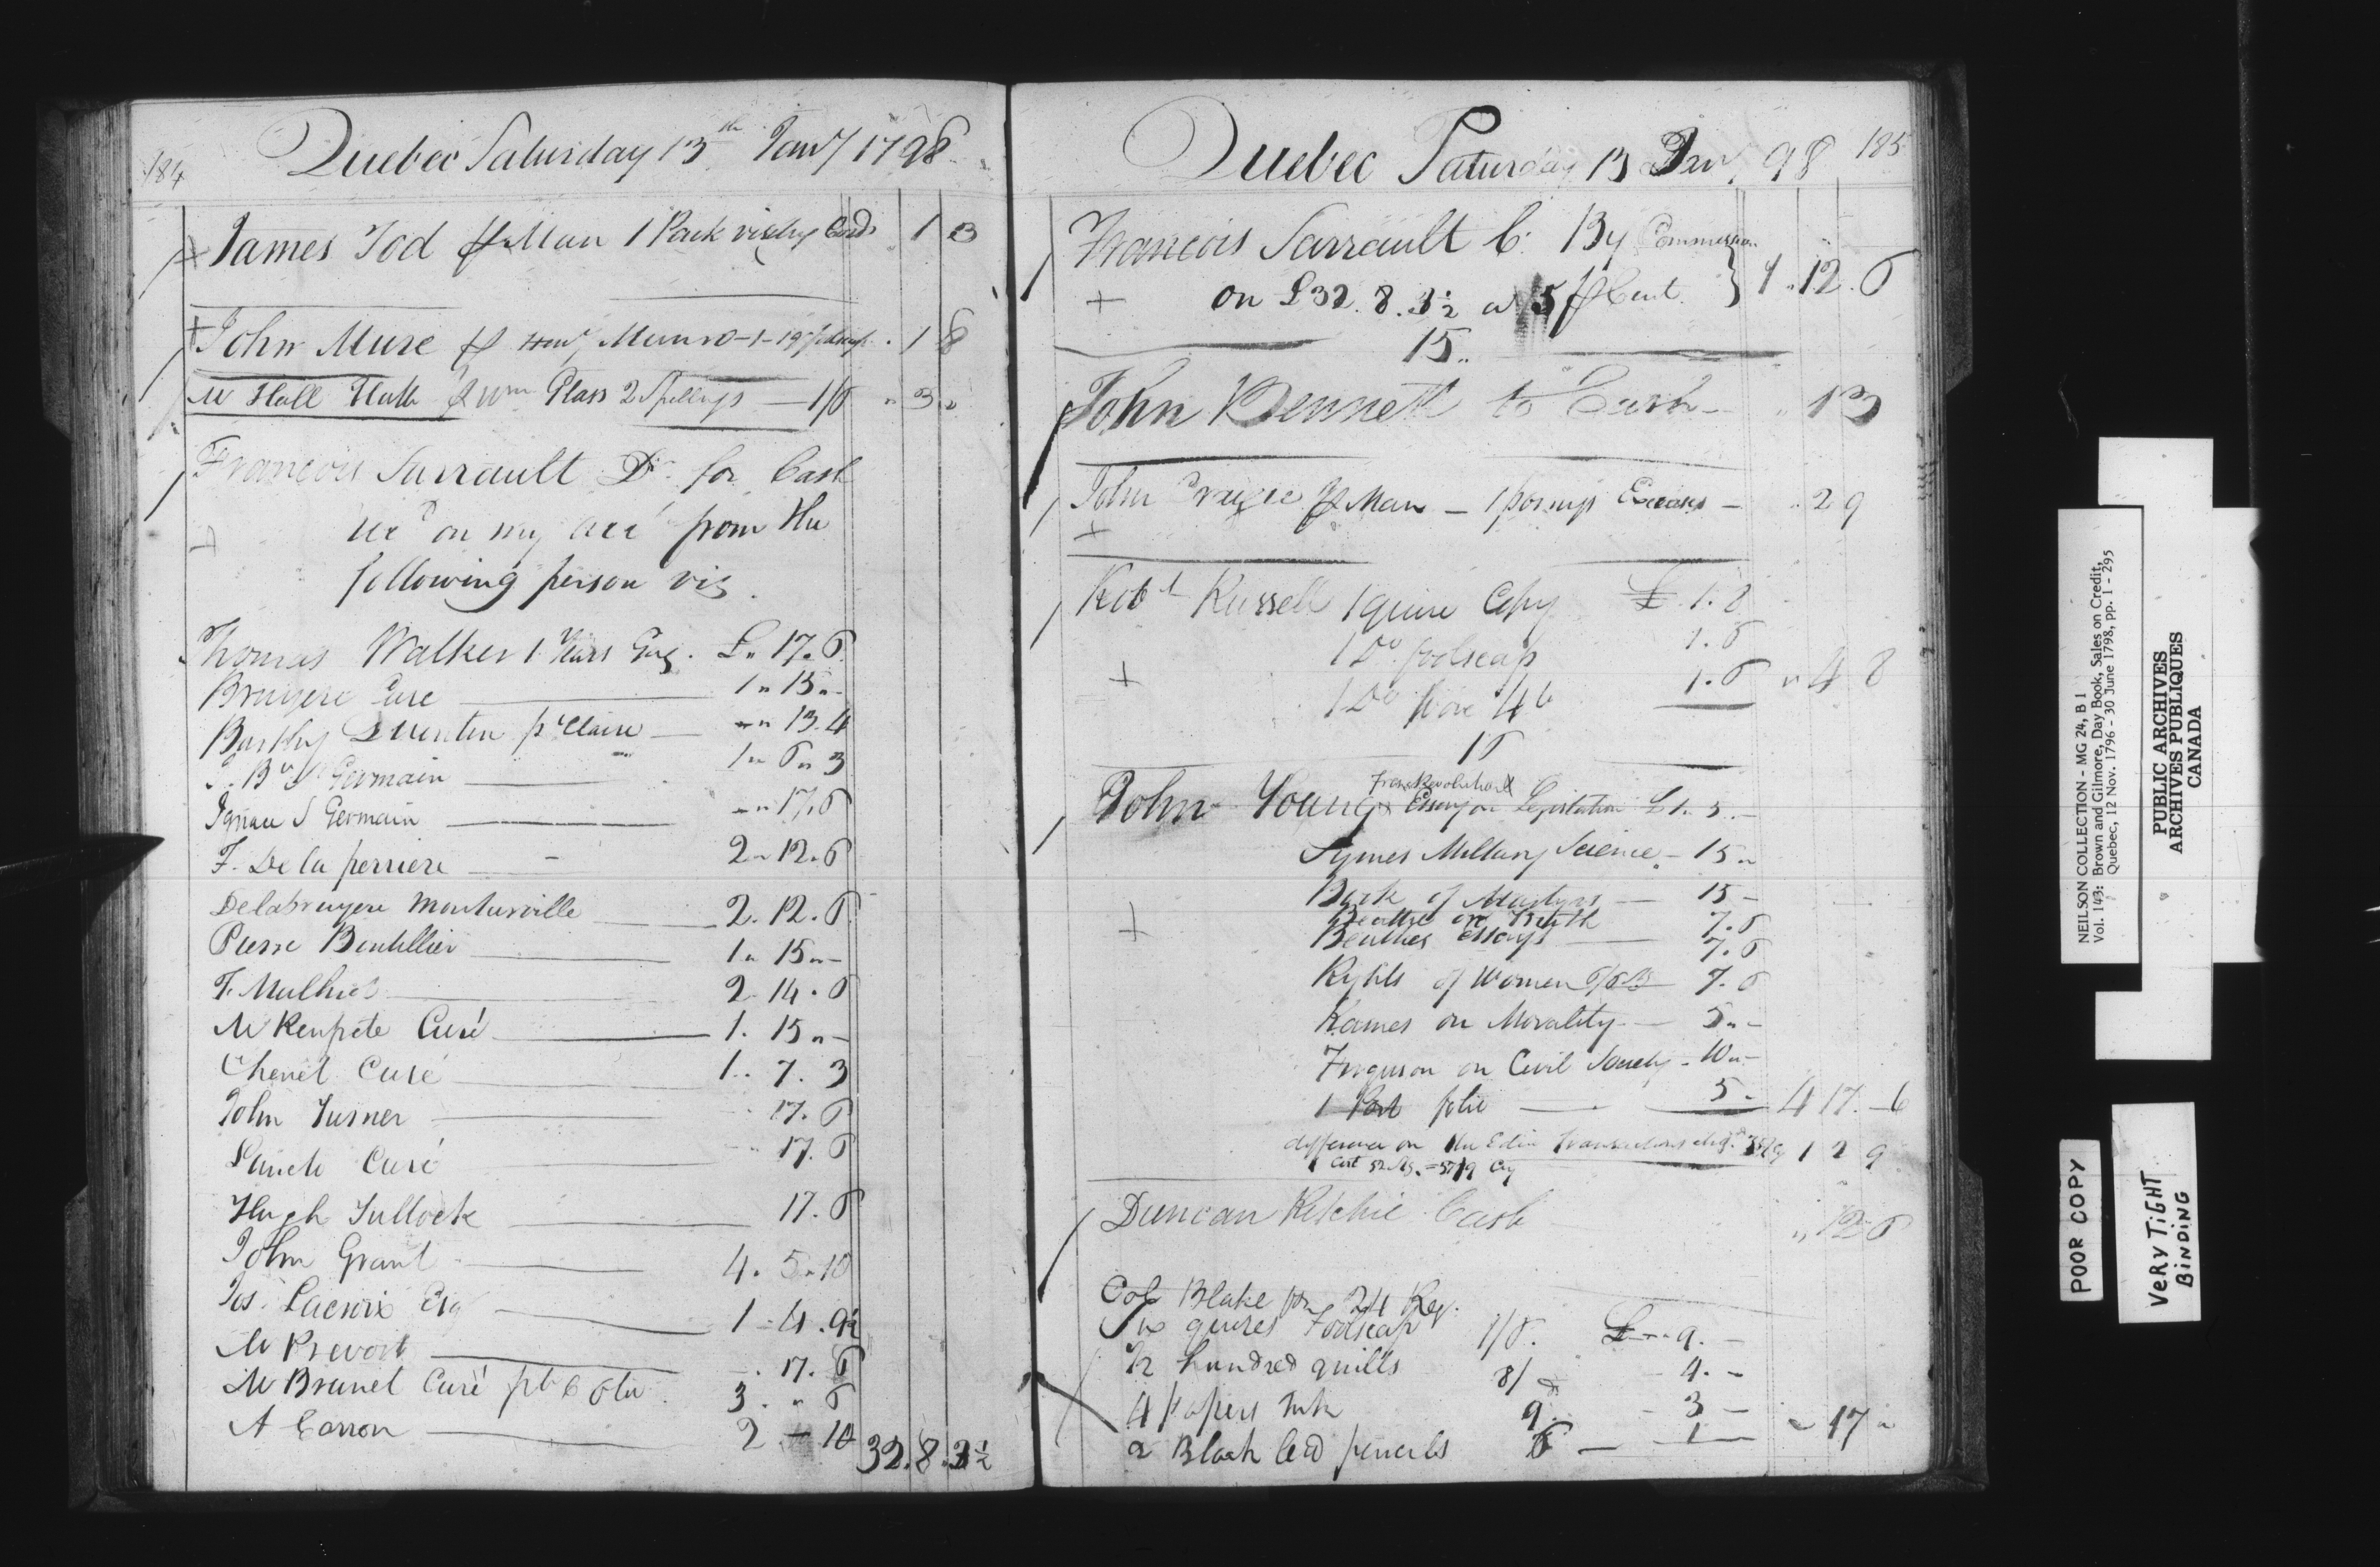 184
Quebec Saturday 13th Jany 1798
James Tod pr Man 1 Pack visitg Cards 1 3
John Mure pr Munro - 1 - 1 8
Mr Hall Hatt pr Wm Glass 2 Spellings — 1/6 " 3 "
Francois Sarrault Dr for Cash
recd on my acct from the
following person viz
Thomas Walker 1 Years Gaz. £ " 17. 6
Bruyere Cure 1 " 15 " -
Quentin pt Claire — - " 13. 4
Germain 1 " 6 " 3
Ignace S Germain - " 17. 6
F. De la perriere 2 " 12. 6
Delabruyere Montarville 2. 12. 6
Pierre Boutillier 1 " 15 " -
F. Mulhiot 2. 14. 6
Mr Renfrete Curé 1. 15 " -
Chenet Curé 1. 7. 3
John Turner 17. 6
Curé 17. 6
Hugh Tullock 17. 6
John Grant 4. 5 " 10
Jos. Lacroix Esq 1 - 4. 9½
Mr Prevost 17. 6
Mr Brunet Curé 3. " 6
A Carron 2 - 10
32. 8. 3½
Quebec Saturday 13 Jany 98 185
Francois Sarrault Cr. By Commission
on £32. 8. 3½ at 5 pr Cent. } 4. 12. 6
15 "
John Bennett to Cash - " 13
John Craigie pr Man — - " 2 9
Robt Russell 1 quire Copy £ 1. 8
1 Do foolscap 1. 6
1 Do 4to 1. 6 " 4 8
16
John Young French Revolution
Essay on Legislation £ 1. 5. -
Symes Military Science - 15 "
Book of Martyrs — 15 -
Beattie on Truth 7. 6
Beatties Essays — 7. 6
Rights of Women 7. 6
Kames on Morality — 5 " -
Ferguson on Civil Society - 10 " -
1 Port folio — 5 - 4 17 - 6
difference on the Edin Transactions 1 2 9
Cost
Duncan Ritchie Cash " 12 6
Col Blake for 24 Reg.
Six quires Foolscap 1/6. £ - " 9. -
½ hundred quills 8/ - 4. -
4 papers Ink 9 - 3 -
2 Black led pencils 6 — 1 - 17 "
NEILSON COLLECTION - MG 24, B 1
Vol. 143: Brown and Gilmore, Day Book, Sales on Credit,
Quebec, 12 Nov. 1796 - 30 June 1798, pp. 1 - 295
PUBLIC ARCHIVES
ARCHIVES PUBLIQUES
CANADA
POOR COPY
VERY TIGHT
BINDING